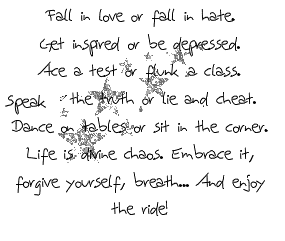 Fall in love or fall in hate.
Get inspired or be depressed.
Ace a test or flunk a class.
Speak the truth or lie and cheat.
Dance on tables or sit in the corner.
Life is divine chaos. Embrace it,
forgive yourself, breath... And enjoy
the ride!